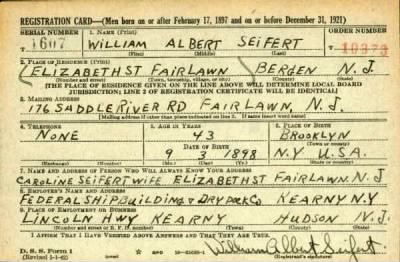 REGISTRATION CARD—(Men born on or after February 17, 1897 and on or before December 31, 1921)
SERIAL NUMBER 1. NAME (Print) ORDER NUMBER
1607 WILLIAM ALBERT SEIFERT
(First) (Middle) (Last)
2. PLACE OF RESIDENCE (Print)
(ELIZABETH ST FAIRLAWN) BERGEN N.J.
(Number and street) (Town, township, village, or city) (County) (State)
[THE PLACE OF RESIDENCE GIVEN ON THE LINE ABOVE WILL DETERMINE LOCAL BOARD
JURISDICTION; LINE 2 OF REGISTRATION CERTIFICATE WILL BE IDENTICAL]
3. MAILING ADDRESS
176 SADDLE RIVER RD FAIRLAWN, N.J.
[Mailing address if other than place indicated on line 2. If same insert word same]
4. TELEPHONE 5. AGE IN YEARS 6. PLACE OF BIRTH
NONE 43 BROOKLYN
DATE OF BIRTH (Town or county)
9 3 1898 N.Y U.S.A
(Exchange) (Number) (Mo.) (Day) (Yr.) (State or country)
7. NAME AND ADDRESS OF PERSON WHO WILL ALWAYS KNOW YOUR ADDRESS
CAROLINE SEIFERT WIFE ELIZABETH ST FAIRLAWN. N.J
8. EMPLOYER'S NAME AND ADDRESS
FEDERAL SHIPBUILDING & DRYDOCK CO KEARNY N.Y
9. PLACE OF EMPLOYMENT OR BUSINESS
LINCOLN HWY KEARNY HUDSON N.J.
(Number and street or R. F. D. number) (Town) (County) (State)
I AFFIRM THAT I HAVE VERIFIED ABOVE ANSWERS AND THAT THEY ARE TRUE.
D. S. S. Form 1
(Revised 4-1-42) GPO William Albert Seifert
(Registrant's signature)